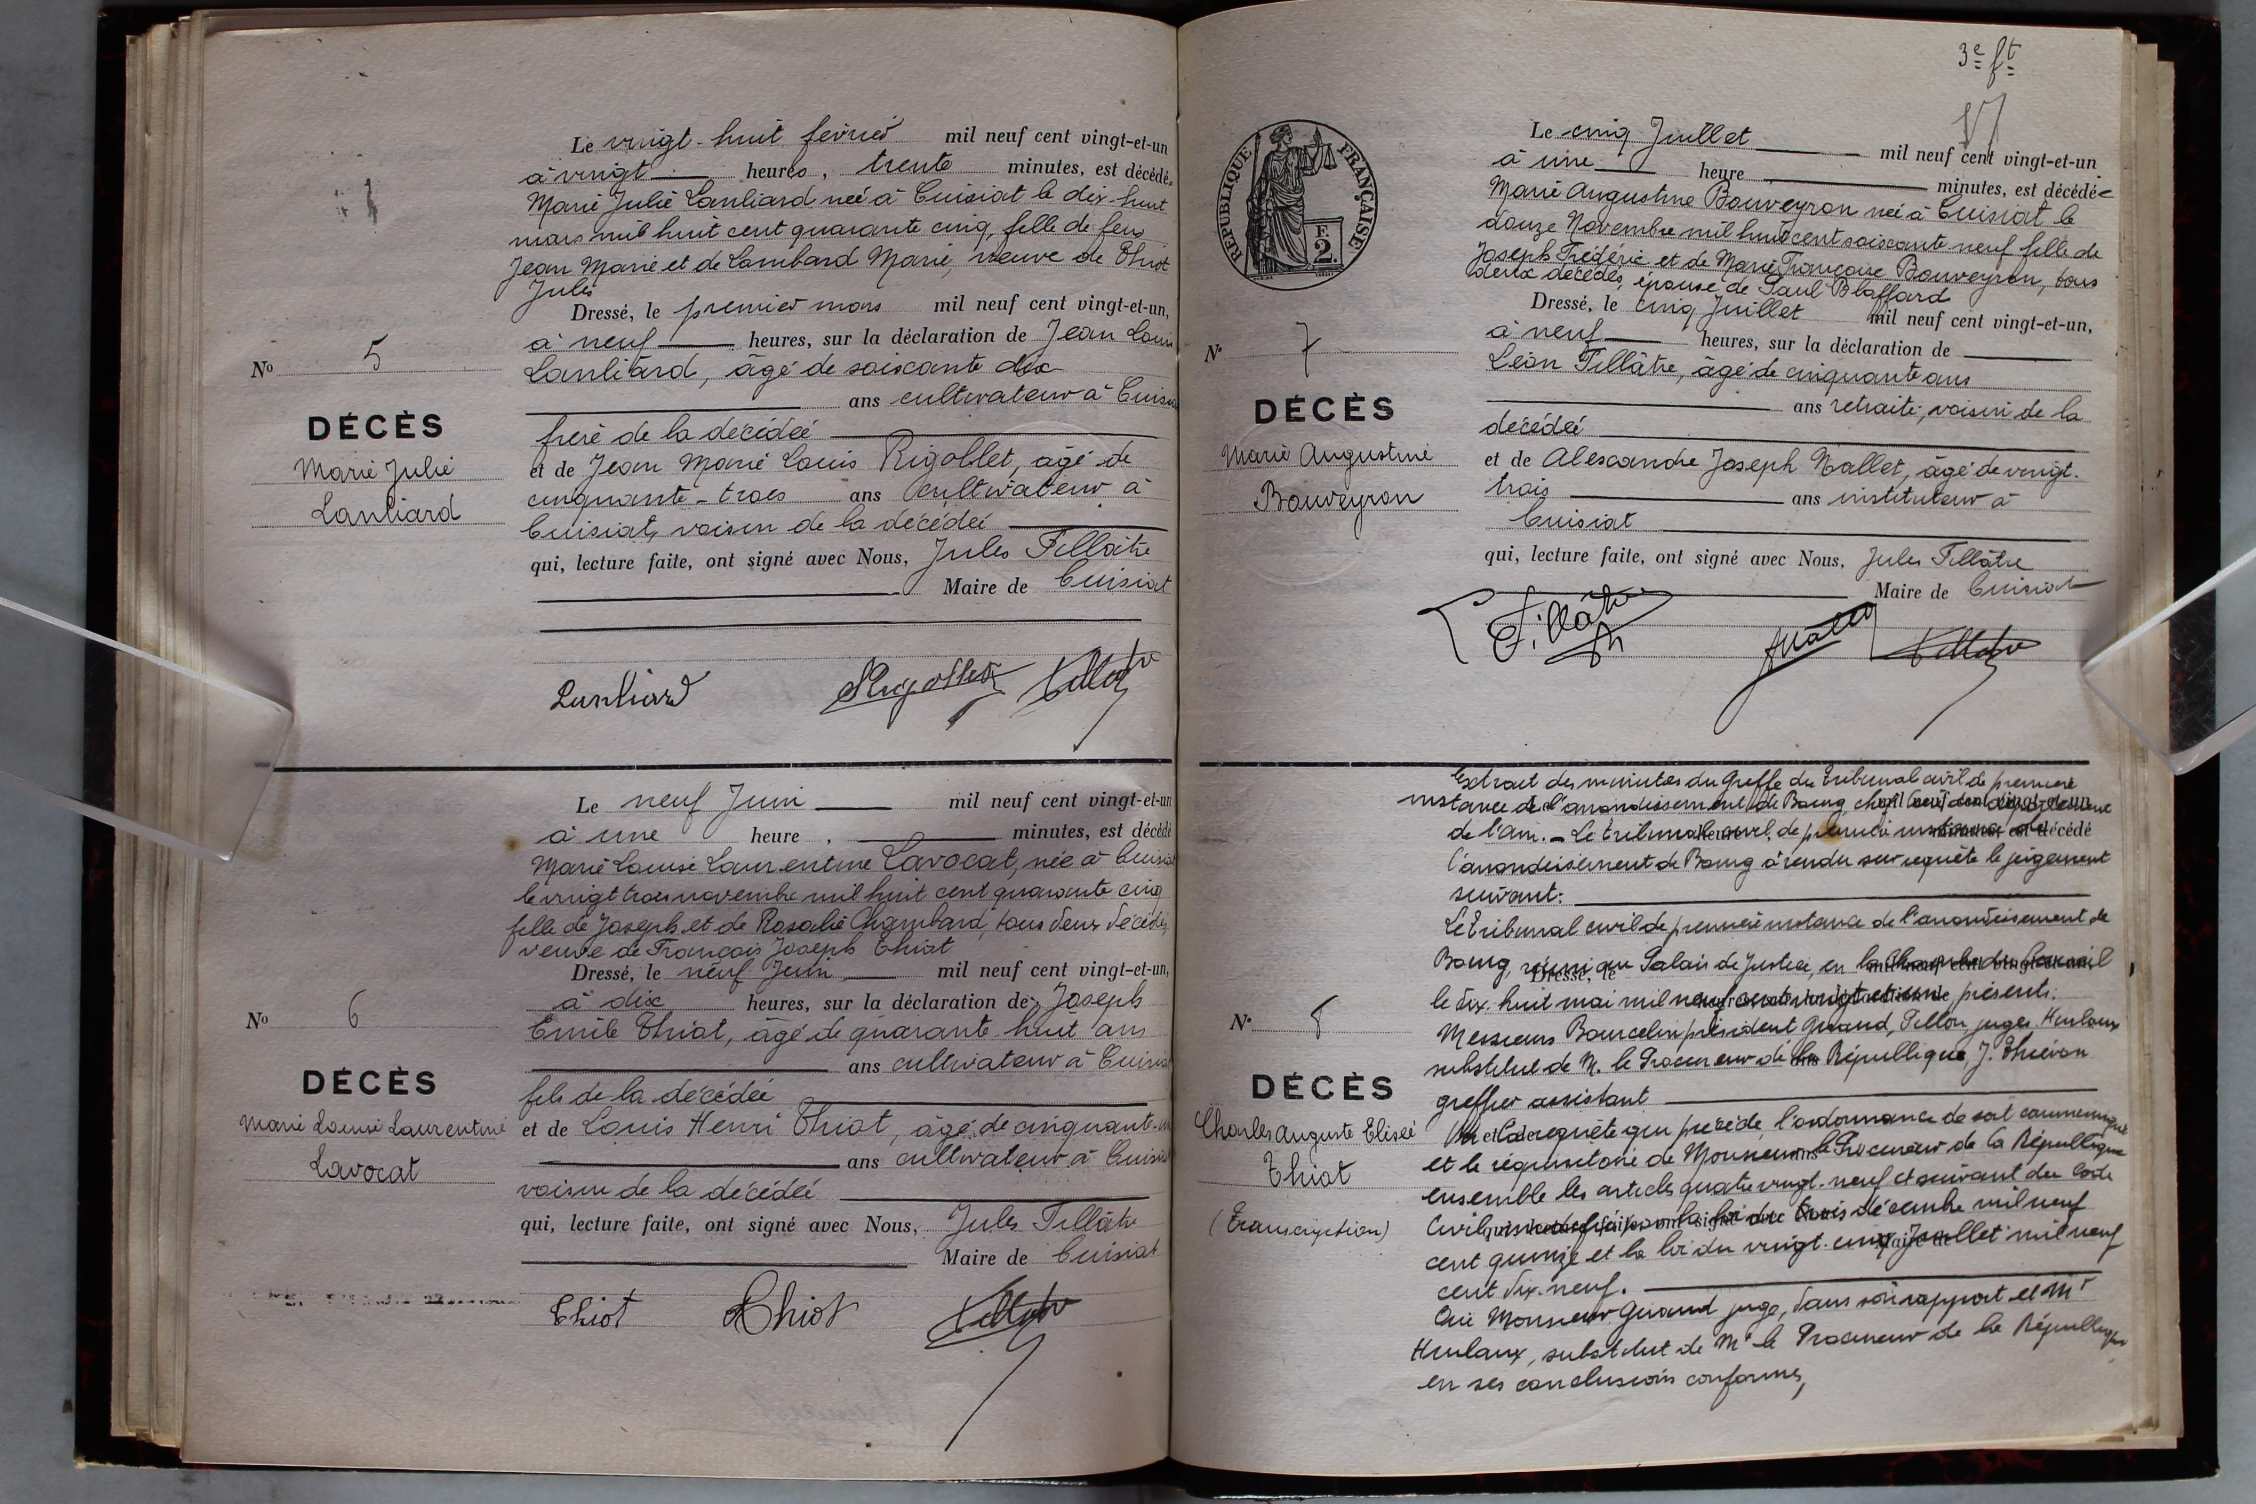 Le vingt-huit février mil neuf cent vingt-et-un
à vingt heures, trente minutes, est décédée
Marie Julie Lanliard née à Cuisiat le dix-huit
mars mil huit cent quarante cinq, fille de feu
Jean Marie et de Lombard Marie, veuve de Thiot
Jules
Dressé, le premier mars mil neuf cent vingt-et-un,
à neuf heures, sur la déclaration de Jean Louis
Lanliard, âgé de soixante dix
ans cultivateur à Cuisiat
frère de la décédée
et de Jean Marie Louis Rigollet, âgé de
cinquante-trois ans cultivateur à
Cuisiat, voisin de la décédée
qui, lecture faite, ont signé avec Nous, Jules Fillâtre
Maire de Cuisiat
No 5
DÉCÈS
Marie Julie
Lanliard
Lanliard Rigollet Fillatre
Le neuf Juin mil neuf cent vingt-et-un
à une heure, minutes, est décédé
Marie Louise Laurentine Lavocat, née à Cuisiat
le vingt trois novembre mil huit cent quarante cinq
fille de Joseph et de Rosalie Chambard, tous deux décédés,
veuve de François Joseph Thiot
Dressé, le neuf Juin mil neuf cent vingt-et-un,
à dix heures, sur la déclaration de Joseph
Emile Thiot, âgé de quarante huit ans
ans cultivateur à Cuisiat
fils de la décédée
et de Louis Henri Thiot, âgé de cinquant-un
ans cultivateur à Cuisiat
voisin de la décédée
qui, lecture faite, ont signé avec Nous, Jules Fillâtre
Maire de Cuisiat
No 6
DÉCÈS
Marie Louise Laurentine
Lavocat
Thiot Thiot Fillatre
3e ft
RÉPUBLIQUE FRANÇAISE
F.
2.
Le cinq Juillet mil neuf cent vingt-et-un
à une heure minutes, est décédée
Marie Augustine Bouveyron née à Cuisiat le
douze Novembre mil huit cent soixante neuf fille de
Joseph Frédéric et de Marie Françoise Bouveyron, tous
deux décédés, épouse de Paul Blaffard
Dressé, le cinq Juillet mil neuf cent vingt-et-un,
à neuf heures, sur la déclaration de
Léon Fillâtre, âgé de cinquante ans
ans retraité, voisin de la
décédée
et de Alexandre Joseph Nallet, âgé de vingt-
trois ans instituteur à
Cuisiat
qui, lecture faite, ont signé avec Nous, Jules Fillâtre
Maire de Cuisiat
No 7
DÉCÈS
Marie Augustine
Bouveyron
Fillâtre Nallet Fillatre
Extrait des minutes du Greffe du Tribunal civil de première
instance de l'arrondissement de Bourg, chef lieu du département
de l'Ain. - Le tribunal civil de première instance de
l'arrondissement de Bourg a rendu sur requête le jugement
suivant:
Le tribunal civil de première instance de l'arrondissement de
Bourg, réuni au Palais de Justice, en la Chambre du Conseil
le dix-huit mai mil neuf cent vingt et un, présents:
Messieurs Bourcelin président Guand, Tillon juges Hurlaux
substitut de M. le Procureur de la République J. Thiévon
greffier assistant
Vu la requête qui précède, l'ordonnance de soit communiqué
et le réquisitoire de Monsieur le Procureur de la République
ensemble les articles quatre vingt-neuf et suivant du Code
Civil, modifiés par la loi du trois décembre mil neuf
cent quinze et la loi du vingt-cinq Juillet mil neuf
cent dix-neuf.
Ouï Monsieur Guand juge, dans son rapport et Mr
Hurlaux, substitut de Mr le Procureur de la République
en ses conclusions conformes,
No 8
DÉCÈS
Charles Auguste Elisée
Thiot
(Transcription)